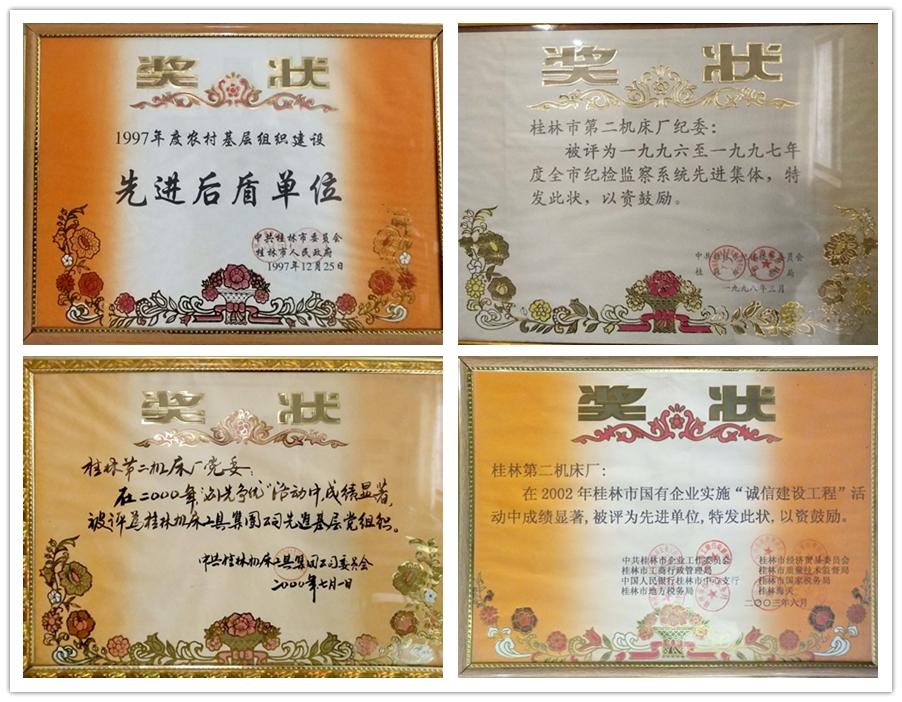 奖 状
1997年度农村基层组织建设
先进后盾单位
中共桂林市委员会
桂林市人民政府
1997年12月25日
奖 状
桂林市第二机床厂纪委：
被评为一九九六至一九九七年
度全市纪检监察系统先进集体，特
发此状，以资鼓励。
中共桂林市纪律检查委员会
桂林市监察局
一九九八年三月
奖 状
桂林第二机床厂党委：
在二000年“创先争优”活动中，成绩显著，
被评为桂林机床工具集团公司先进基层党组织。
中共桂林机床工具集团公司委员会
2000年七月一日
奖 状
桂林第二机床厂：
在2002年桂林市国有企业实施“诚信建设工程”活
动中成绩显著，被评为先进单位，特发此状，以资鼓励。
中共桂林市企业工作委员会 桂林市经济贸易委员会
桂林市工商行政管理局 桂林市质量技术监督局
中国人民银行桂林市中心支行 桂林市国家税务局
桂林市地方税务局 桂林海关
二〇〇三年六月